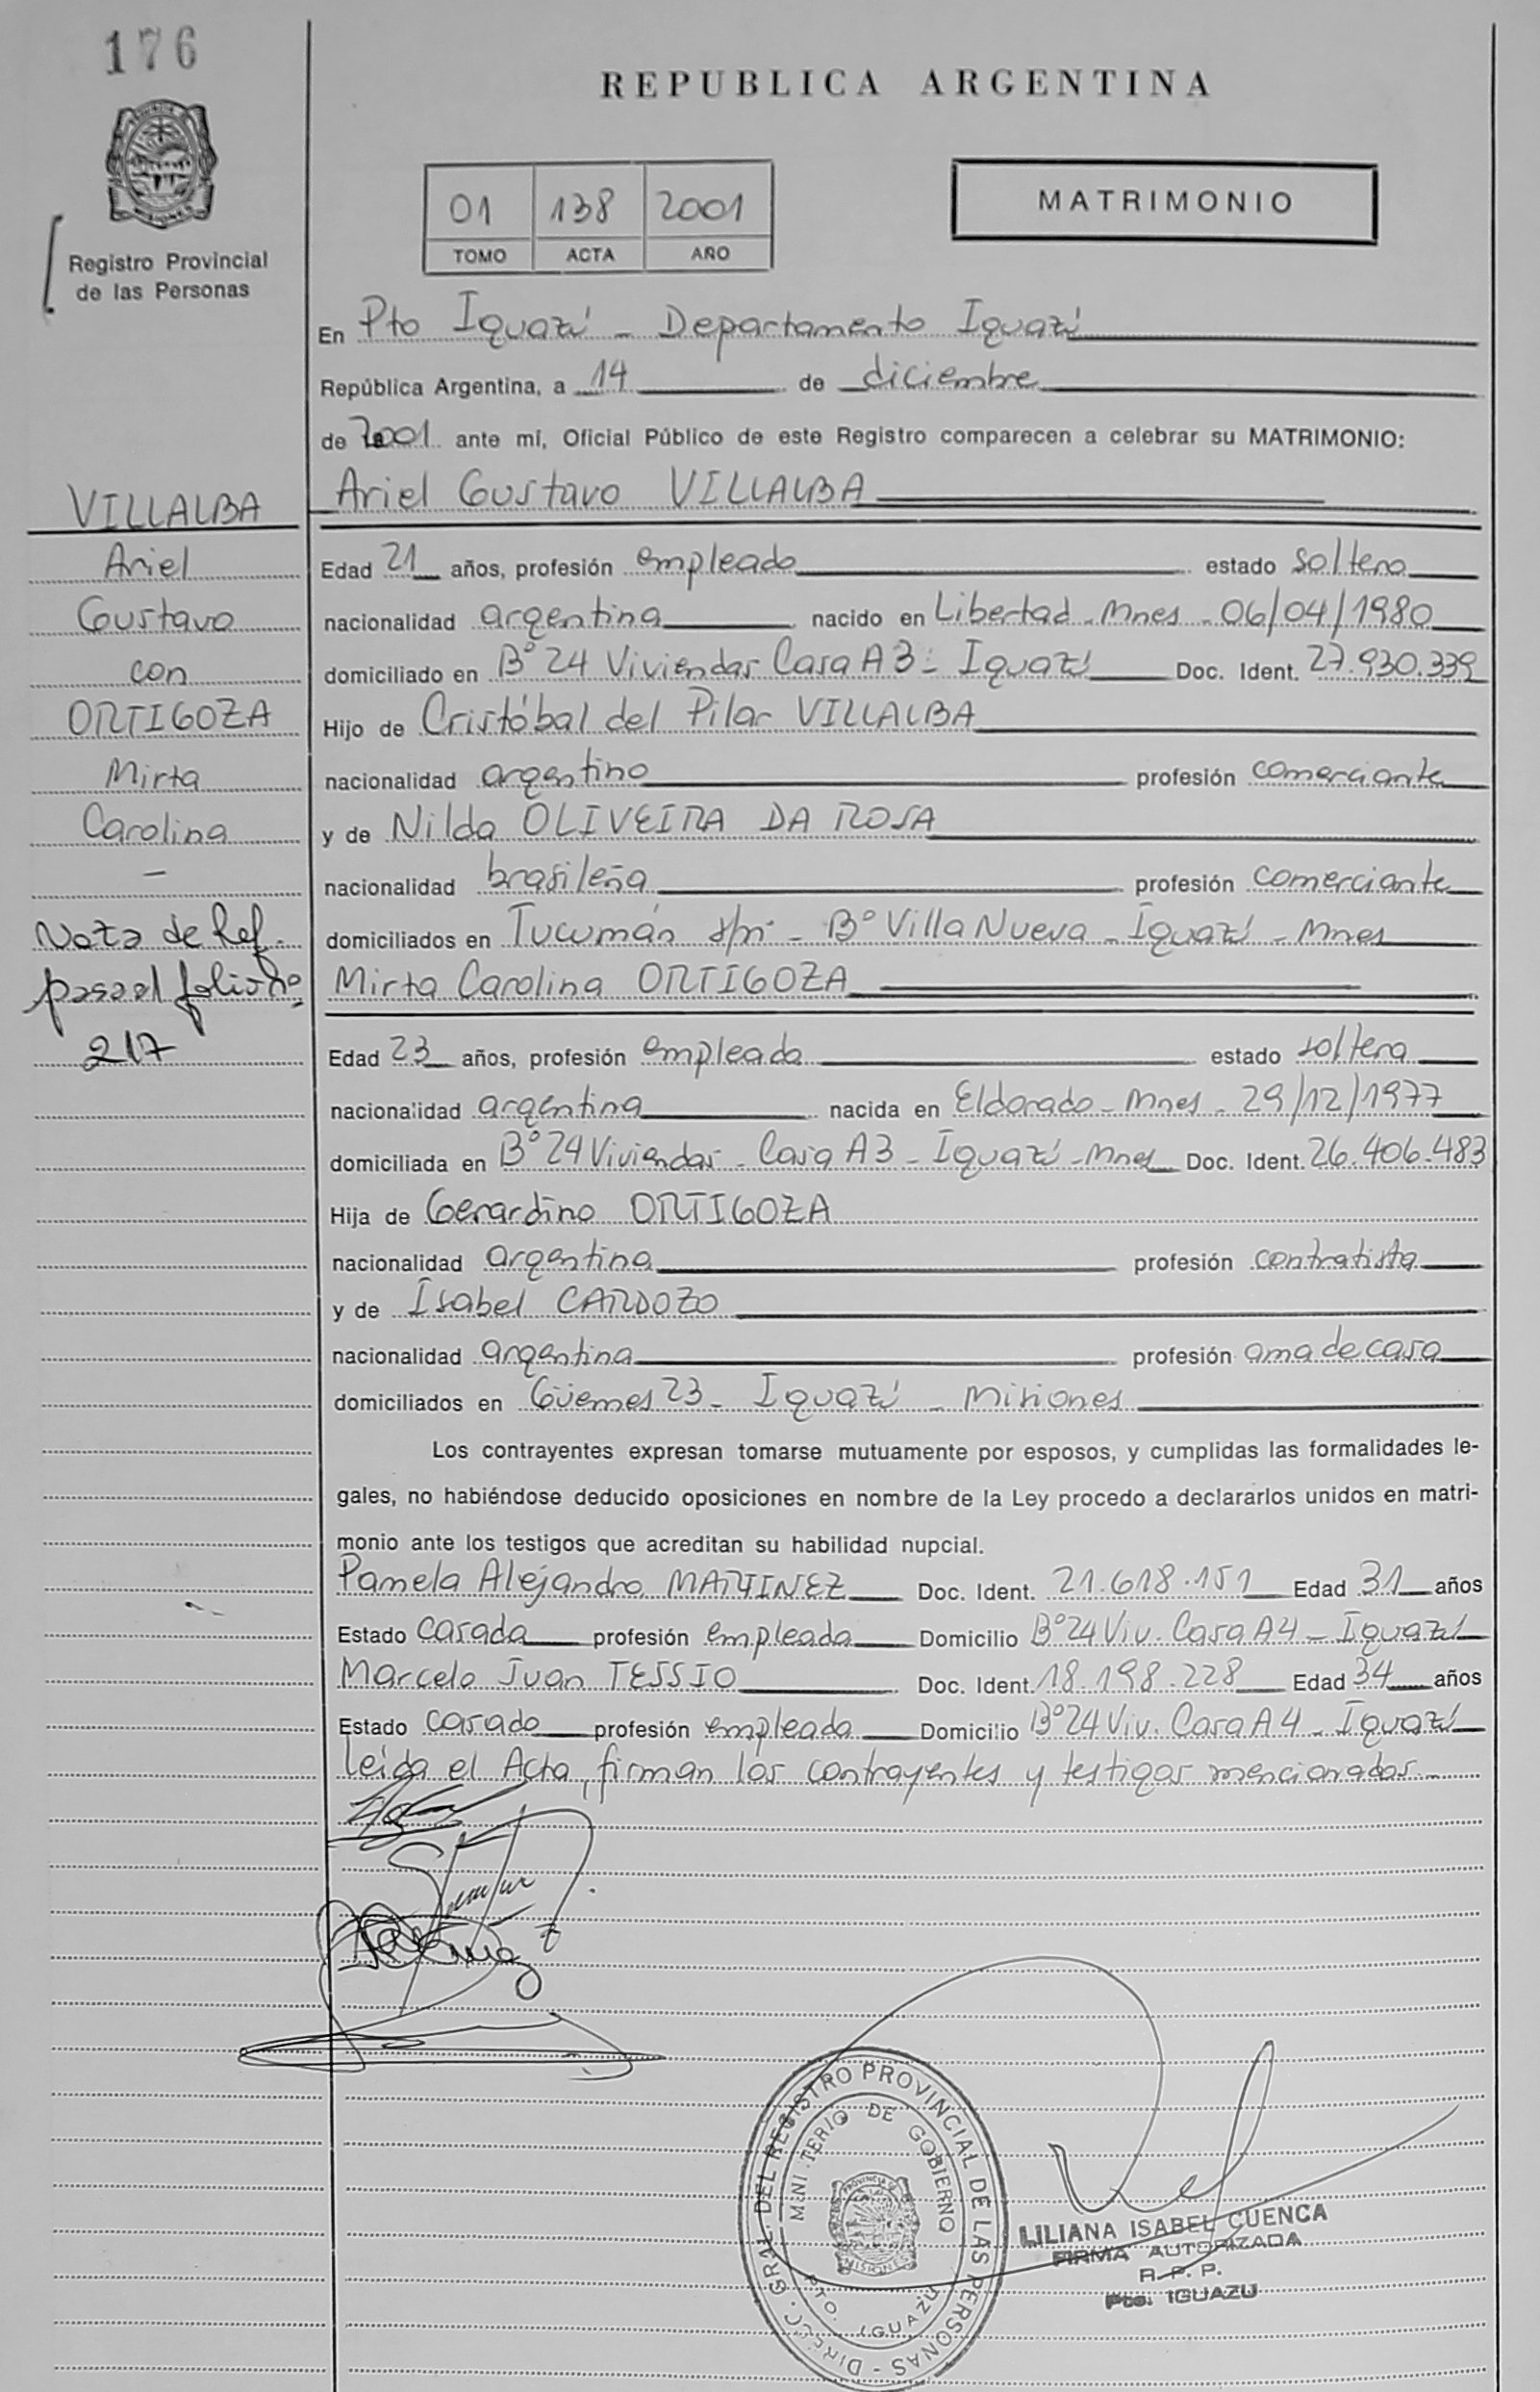 176
REPUBLICA ARGENTINA
01 138 2001
TOMO ACTA AÑO
MATRIMONIO
Registro Provincial
de las Personas
En Pto Iguazú - Departamento Iguazú
República Argentina, a 14 de diciembre
de 2001 ante mí, Oficial Público de este Registro comparecen a celebrar su MATRIMONIO:
VILLALBA
Ariel
Gustavo
con
ORTIGOZA
Mirta
Carolina
-
Nota de Ref.
pasa al folio nº
217
Ariel Gustavo VILLALBA
Edad 21 años, profesión empleado estado soltero
nacionalidad argentina nacido en Libertad - Mnes - 06/04/1980
domiciliado en Bº 24 Viviendas Casa A3 - Iguazú Doc. Ident. 27.930.339
Hijo de Cristóbal del Pilar VILLALBA
nacionalidad argentino profesión comerciante
y de Nilda OLIVEIRA DA ROSA
nacionalidad brasileña profesión comerciante
domiciliados en Tucumán s/n - Bº Villa Nueva - Iguazú - Mnes
Mirta Carolina ORTIGOZA
Edad 23 años, profesión empleada estado soltera
nacionalidad argentina nacida en Eldorado - Mnes - 29/12/1977
domiciliada en Bº 24 Viviendas - Casa A3 - Iguazú - Mnes Doc. Ident. 26.406.483
Hija de Gerardino ORTIGOZA
nacionalidad argentina profesión contratista
y de Isabel CARDOZO
nacionalidad argentina profesión ama de casa
domiciliados en Güemes 23 - Iguazú - Misiones
Los contrayentes expresan tomarse mutuamente por esposos, y cumplidas las formalidades le-
gales, no habiéndose deducido oposiciones en nombre de la Ley procedo a declararlos unidos en matri-
monio ante los testigos que acreditan su habilidad nupcial.
Pamela Alejandra MARTINEZ Doc. Ident. 21.618.151 Edad 31 años
Estado casada profesión empleada Domicilio Bº 24 Viv. Casa A4 - Iguazú
Marcelo Juan TESSIO Doc. Ident. 18.198.228 Edad 34 años
Estado casado profesión empleada Domicilio Bº 24 Viv. Casa A4 - Iguazú
Leída el Acta, firman los contrayentes y testigos mencionados.
DIRECC. GRAL. DEL REGISTRO PROVINCIAL DE LAS PERSONAS -
MINI TERIO DE GOBIERNO
PROVINCIA
MISIONES
PTO. IGUAZU
LILIANA ISABEL CUENCA
FIRMA AUTORIZADA
R. P. P.
Pto. IGUAZU